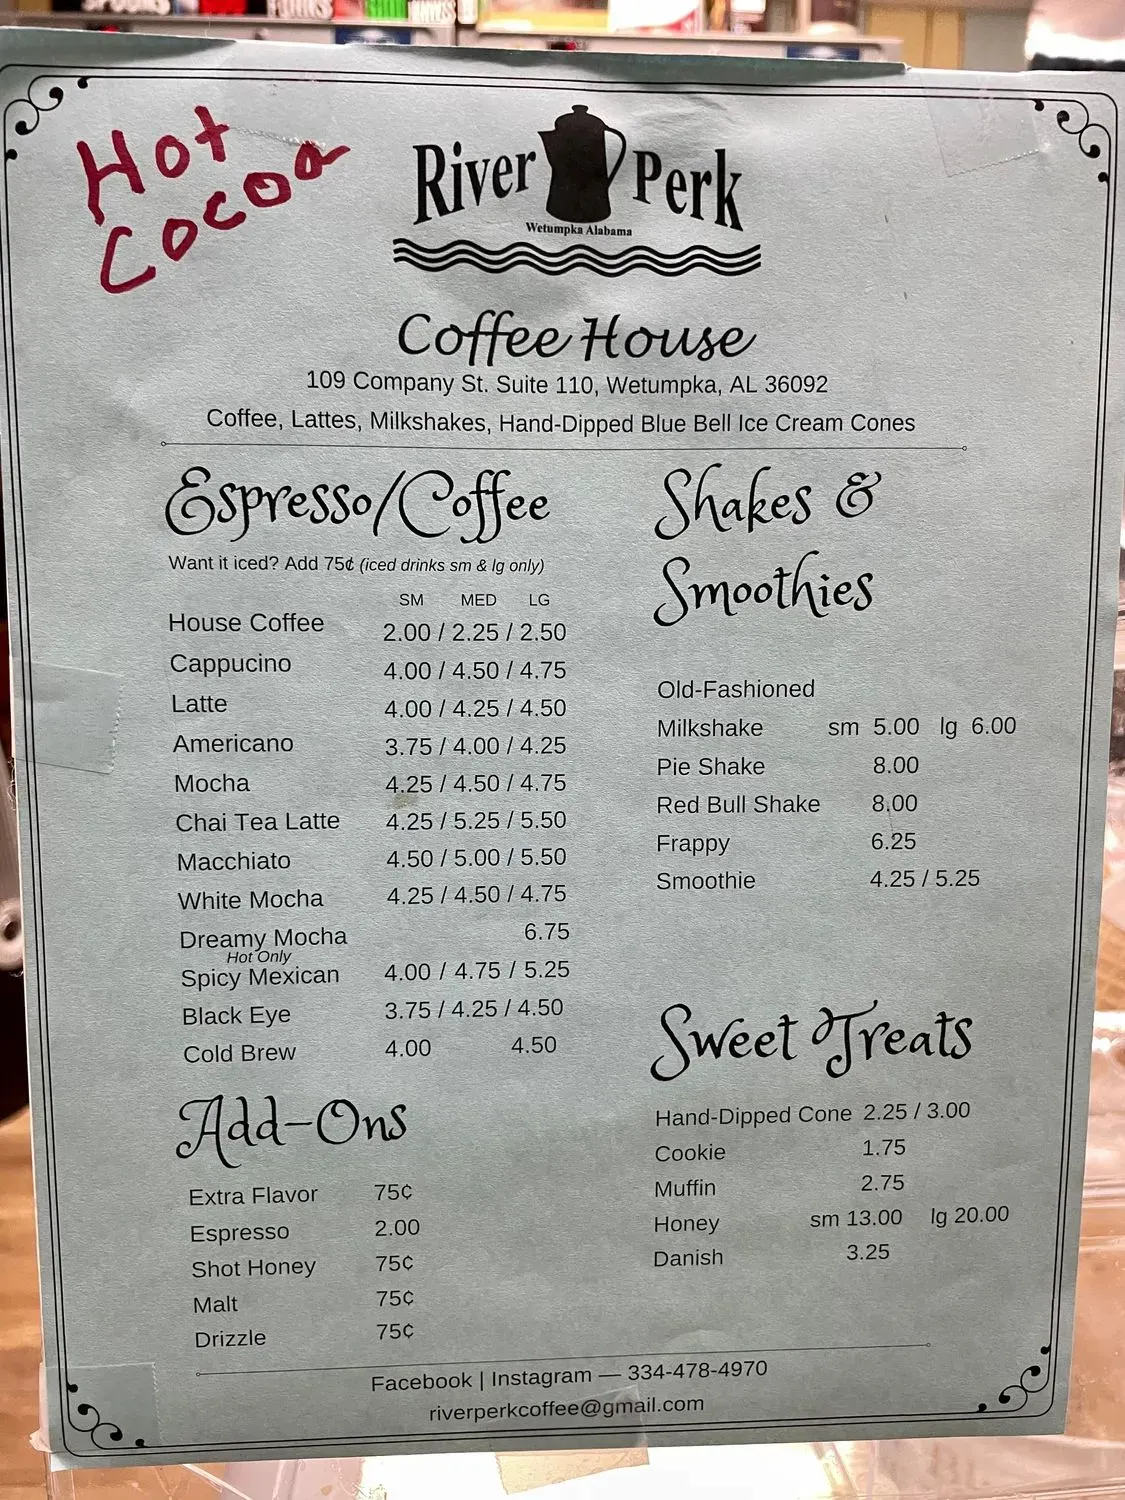 Hot
Cocoa
River Perk
Wetumpka Alabama
Coffee House
109 Company St. Suite 110, Wetumpka, AL 36092
Coffee, Lattes, Milkshakes, Hand-Dipped Blue Bell Ice Cream Cones
Espresso/Coffee
Want it iced? Add 75¢ (iced drinks sm & lg only)
SM MED LG
House Coffee 2.00 / 2.25 / 2.50
Cappucino 4.00 / 4.50 / 4.75
Latte 4.00 / 4.25 / 4.50
Americano 3.75 / 4.00 / 4.25
Mocha 4.25 / 4.50 / 4.75
Chai Tea Latte 4.25 / 5.25 / 5.50
Macchiato 4.50 / 5.00 / 5.50
White Mocha 4.25 / 4.50 / 4.75
Dreamy Mocha 6.75
Hot Only
Spicy Mexican 4.00 / 4.75 / 5.25
Black Eye 3.75 / 4.25 / 4.50
Cold Brew 4.00 4.50
Add-Ons
Extra Flavor 75¢
Espresso 2.00
Shot Honey 75¢
Malt 75¢
Drizzle 75¢
Shakes &
Smoothies
Old-Fashioned
Milkshake sm 5.00 lg 6.00
Pie Shake 8.00
Red Bull Shake 8.00
Frappy 6.25
Smoothie 4.25 / 5.25
Sweet Treats
Hand-Dipped Cone 2.25 / 3.00
Cookie 1.75
Muffin 2.75
Honey sm 13.00 lg 20.00
Danish 3.25
Facebook | Instagram — 334-478-4970
riverperkcoffee@gmail.com